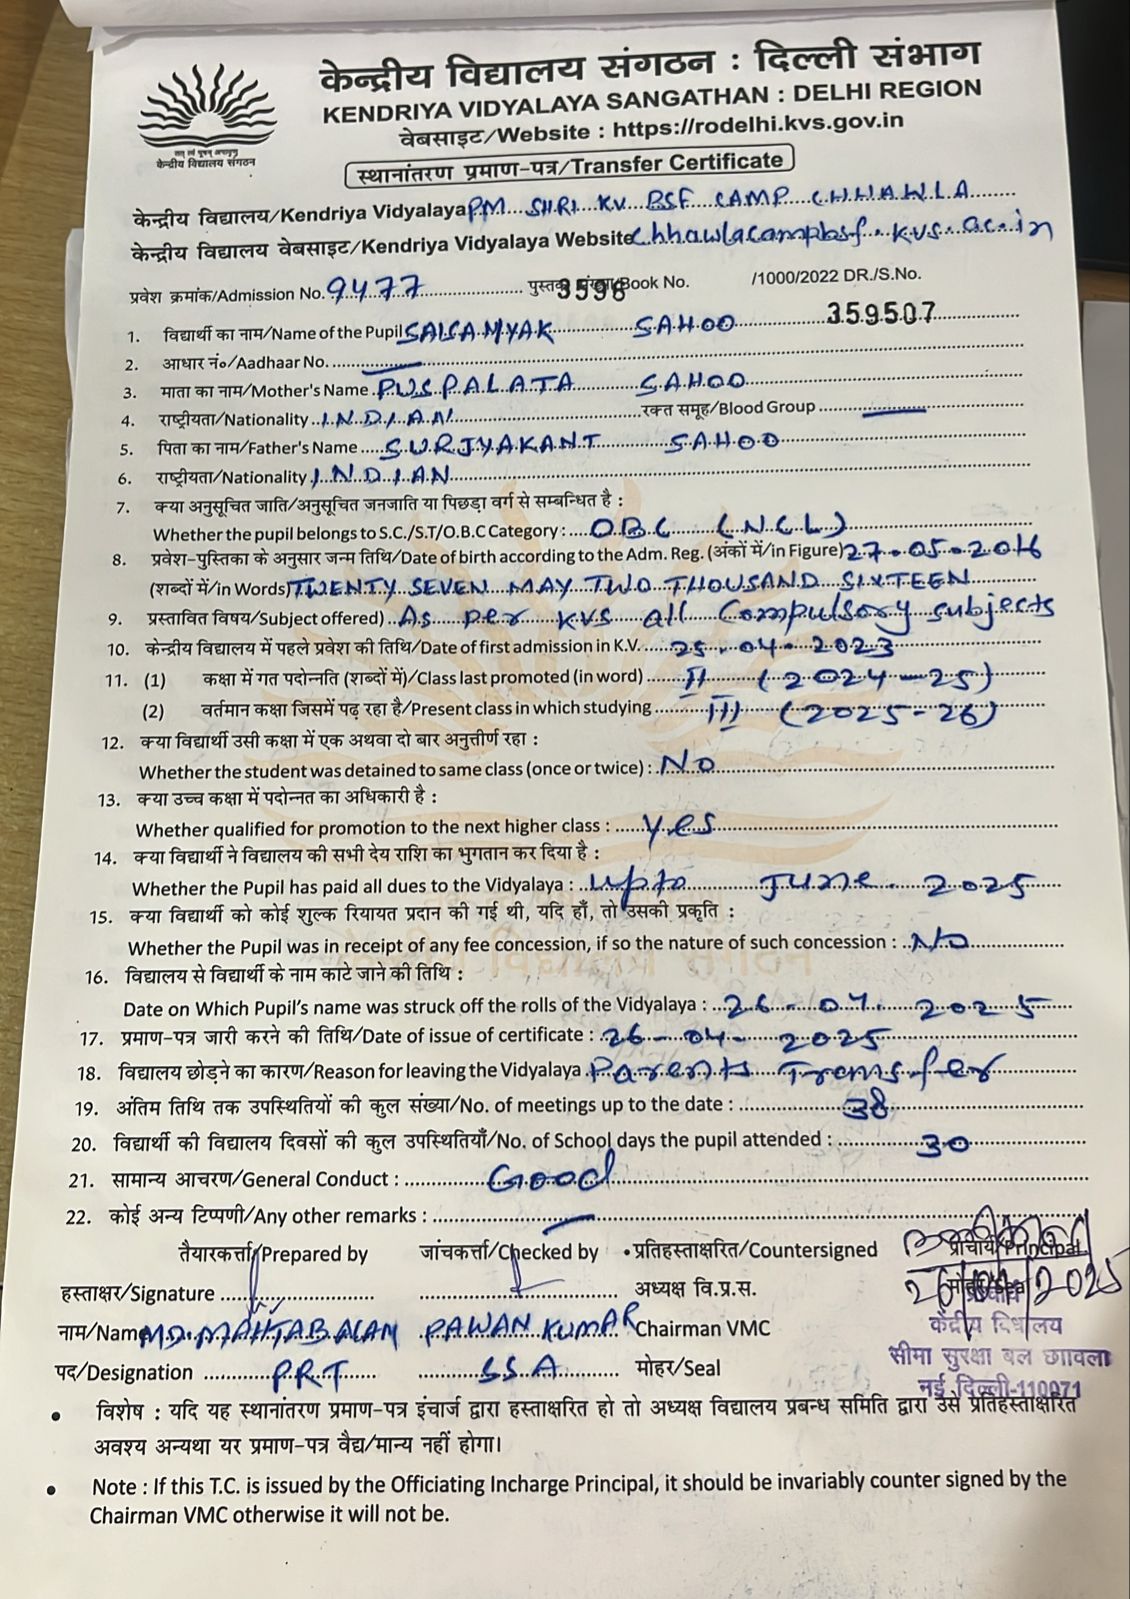 केन्द्रीय विद्यालय संगठन : दिल्ली संभाग
KENDRIYA VIDYALAYA SANGATHAN : DELHI REGION
वेबसाइट/Website : https://rodelhi.kvs.gov.in
केन्द्रीय विद्यालय संगठन
स्थानांतरण प्रमाण-पत्र/Transfer Certificate
केन्द्रीय विद्यालय/Kendriya Vidyalaya PM SHRI KV BSF CAMP CHHAWLA
केन्द्रीय विद्यालय वेबसाइट/Kendriya Vidyalaya Website Chhawlacampbsf.kvs.ac.in
प्रवेश क्रमांक/Admission No. 9477 पुस्तक संख्या/Book No. 3596 /1000/2022 DR./S.No. 359507
1. विद्यार्थी का नाम/Name of the Pupil SAISAMYAK SAHOO
2. आधार नं०/Aadhaar No. —
3. माता का नाम/Mother's Name PUSPALATA SAHOO
4. राष्ट्रीयता/Nationality INDIAN रक्त समूह/Blood Group —
5. पिता का नाम/Father's Name SURJYAKANT SAHOO
6. राष्ट्रीयता/Nationality INDIAN
7. क्या अनुसूचित जाति/अनुसूचित जनजाति या पिछड़ा वर्ग से सम्बन्धित है :
Whether the pupil belongs to S.C./S.T/O.B.C Category : OBC (NCL)
8. प्रवेश-पुस्तिका के अनुसार जन्म तिथि/Date of birth according to the Adm. Reg. (अंकों में/in Figure) 27-05-2016
(शब्दों में/in Words) TWENTY SEVEN MAY TWO THOUSAND SIXTEEN
9. प्रस्तावित विषय/Subject offered) As per KVS all Compulsory subjects
10. केन्द्रीय विद्यालय में पहले प्रवेश की तिथि/Date of first admission in K.V. 25-04-2023
11. (1) कक्षा में गत पदोन्नति (शब्दों में)/Class last promoted (in word) II (2024-25)
(2) वर्तमान कक्षा जिसमें पढ़ रहा है/Present class in which studying III (2025-26)
12. क्या विद्यार्थी उसी कक्षा में एक अथवा दो बार अनुत्तीर्ण रहा :
Whether the student was detained to same class (once or twice) : NO
13. क्या उच्च कक्षा में पदोन्नत का अधिकारी है :
Whether qualified for promotion to the next higher class : yes
14. क्या विद्यार्थी ने विद्यालय की सभी देय राशि का भुगतान कर दिया है :
Whether the Pupil has paid all dues to the Vidyalaya : upto June 2025
15. क्या विद्यार्थी को कोई शुल्क रियायत प्रदान की गई थी, यदि हाँ, तो उसकी प्रकृति :
Whether the Pupil was in receipt of any fee concession, if so the nature of such concession : NO
16. विद्यालय से विद्यार्थी के नाम काटे जाने की तिथि :
Date on Which Pupil's name was struck off the rolls of the Vidyalaya : 26-04-2025
17. प्रमाण-पत्र जारी करने की तिथि/Date of issue of certificate : 26-04-2025
18. विद्यालय छोड़ने का कारण/Reason for leaving the Vidyalaya Parents Transfer
19. अंतिम तिथि तक उपस्थितियों की कुल संख्या/No. of meetings up to the date : 38
20. विद्यार्थी की विद्यालय दिवसों की कुल उपस्थितियाँ/No. of School days the pupil attended : 30
21. सामान्य आचरण/General Conduct : Good
22. कोई अन्य टिप्पणी/Any other remarks : —
तैयारकर्त्ता/Prepared by जांचकर्त्ता/Checked by • प्रतिहस्ताक्षरित/Countersigned प्राचार्य/Principal
हस्ताक्षर/Signature अध्यक्ष वि.प्र.स. 26/04/2025
नाम/Name MD. MAHTAB ALAM PAWAN KUMAR Chairman VMC केंद्रीय विद्यालय
पद/Designation PRT SSA मोहर/Seal सीमा सुरक्षा बल छावला
नई दिल्ली-110071
• विशेष : यदि यह स्थानांतरण प्रमाण-पत्र इंचार्ज द्वारा हस्ताक्षरित हो तो अध्यक्ष विद्यालय प्रबन्ध समिति द्वारा उसे प्रतिहस्ताक्षरित
अवश्य अन्यथा यर प्रमाण-पत्र वैद्य/मान्य नहीं होगा।
• Note : If this T.C. is issued by the Officiating Incharge Principal, it should be invariably counter signed by the
Chairman VMC otherwise it will not be.